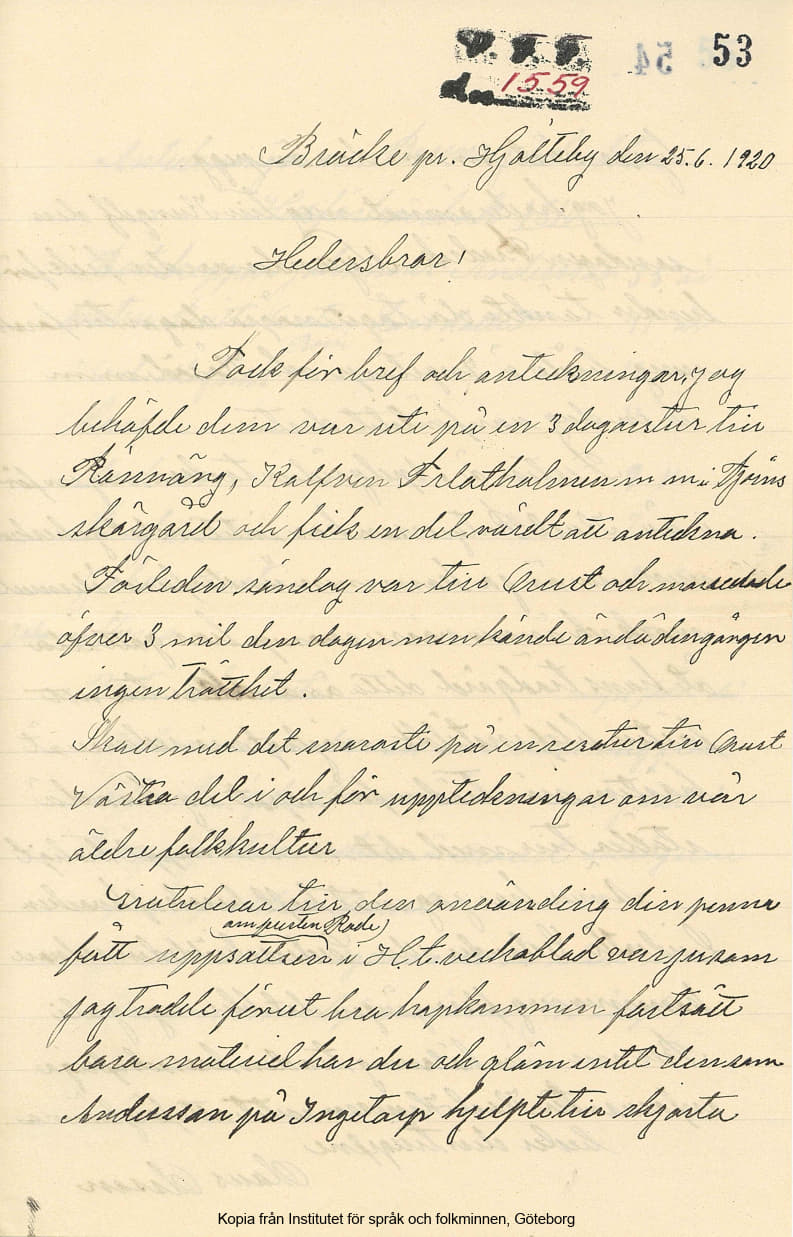 V. F. F.
1559
54
53
Bräcke pr. Hjälteby den 25.6. 1920
Hedersbror!
Tack för bref och anteckningar, jag
behöfde dem var ute på en 3 dagarstur till
Rönnäng, Kalfven Flatholmen m m i Tjörns
skärgård och fick en del värdt att anteckna.
Förleden söndag var till Orust och
öfver 3 mil den dagen men kände ändå den gången
ingen trötthet.
Skall med det snaraste på en resetur till Orust
Västra del i och för uppteckningar om vår
äldre folkkultur
Gratulerar till den användning din penna
(om pesten Rade)
fått uppsattsen i H.t. veckoblad var ju som
jag trodde förut bra hopkommen fortsätt
bara materiel har du och glöm intet den som
Andersson på Ingetorp hjelpte till skjorta
Kopia från Institutet för språk och folkminnen, Göteborg